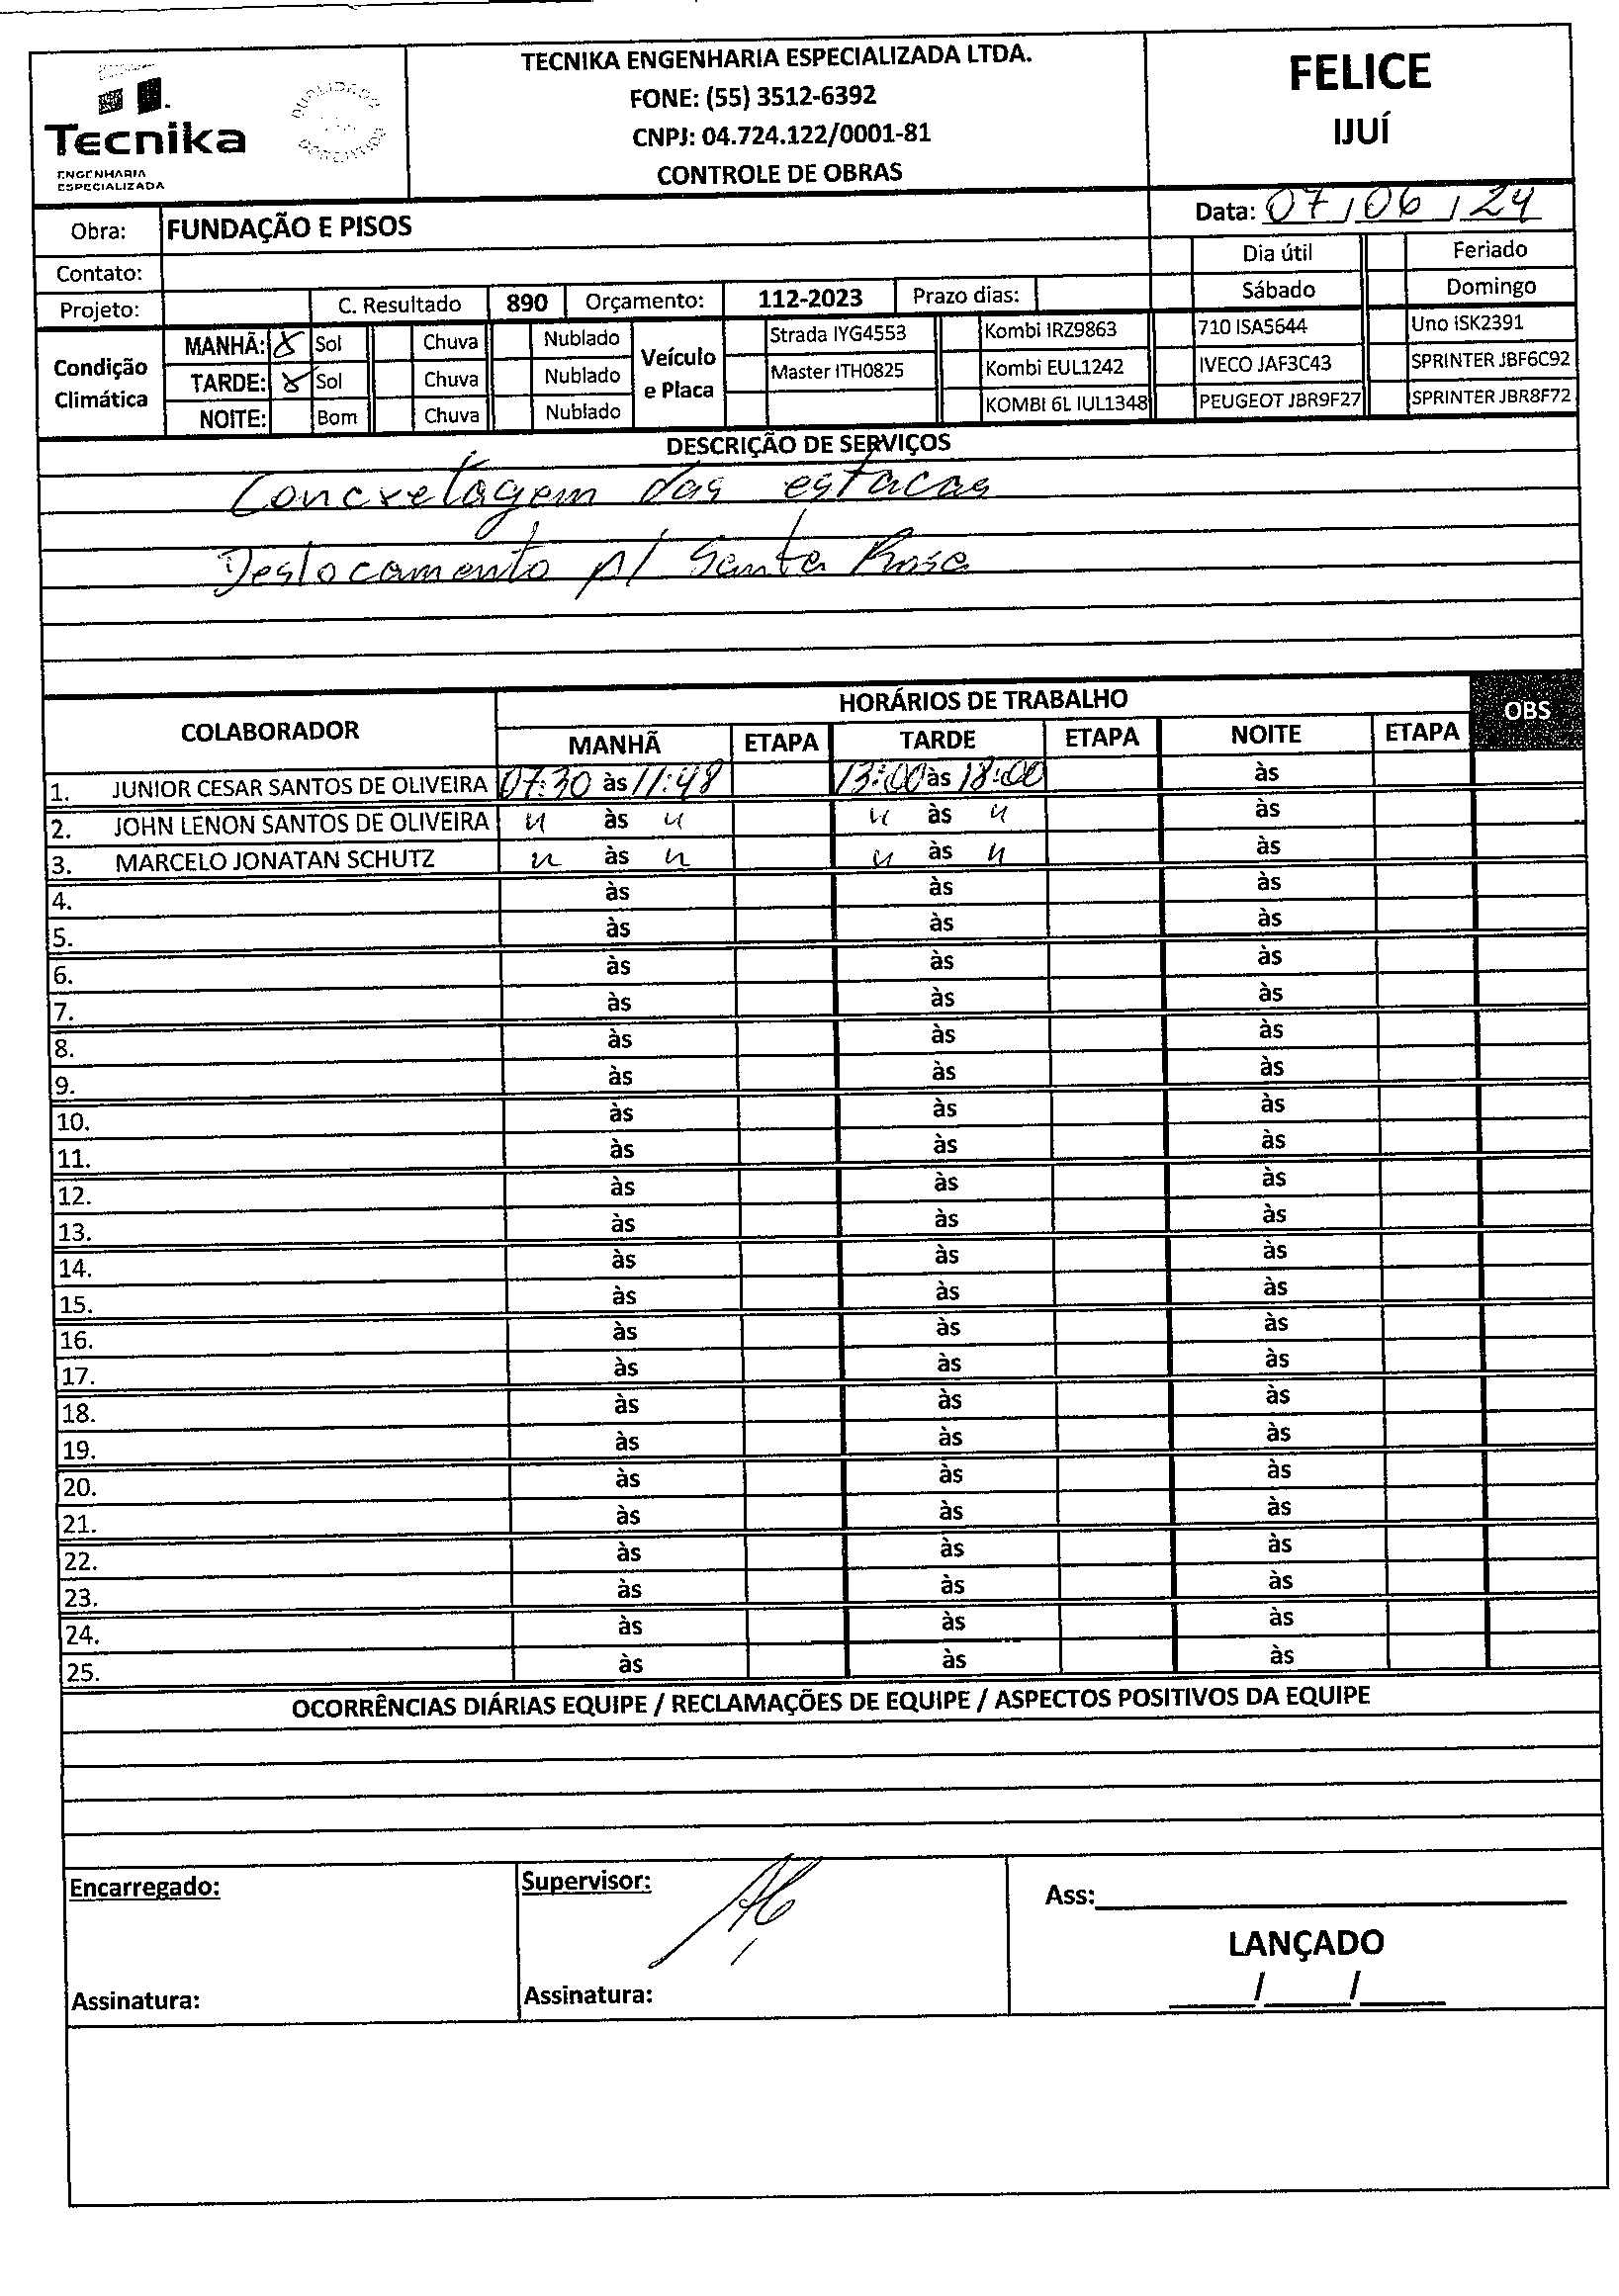 TECNIKA ENGENHARIA ESPECIALIZADA LTDA.
FONE: (55) 3512-6392
CNPJ: 04.724.122/0001-81
CONTROLE DE OBRAS
Tecnika
ENGENHARIA
ESPECIALIZADA
FELICE
IJUÍ
Obra: FUNDAÇÃO E PISOS
Data: 07/06/24
Contato:
Dia útil Feriado
Projeto: C. Resultado 890 Orçamento: 112-2023 Prazo dias: Sábado Domingo
Condição Climática
MANHÃ: X Sol Chuva Nublado
TARDE: X Sol Chuva Nublado
NOITE: Bom Chuva Nublado
Veículo e Placa
Strada IYG4553 Kombi IRZ9863 710 ISA5644 Uno ISK2391
Master ITH0825 Kombi EUL1242 IVECO JAF3C43 SPRINTER JBF6C92
KOMBI 6L IUL1348 PEUGEOT JBR9F27 SPRINTER JBR8F72
DESCRIÇÃO DE SERVIÇOS
Concretagem das estacas
Deslocamento p/ Santa Rosa
COLABORADOR HORÁRIOS DE TRABALHO OBS
MANHÃ ETAPA TARDE ETAPA NOITE ETAPA
1. JUNIOR CESAR SANTOS DE OLIVEIRA 07:30 às 11:48 13:00 às 18:00 às
2. JOHN LENON SANTOS DE OLIVEIRA " às " " às " às
3. MARCELO JONATAN SCHUTZ " às " " às " às
4. às às às
5. às às às
6. às às às
7. às às às
8. às às às
9. às às às
10. às às às
11. às às às
12. às às às
13. às às às
14. às às às
15. às às às
16. às às às
17. às às às
18. às às às
19. às às às
20. às às às
21. às às às
22. às às às
23. às às às
24. às às às
25. às às às
OCORRÊNCIAS DIÁRIAS EQUIPE / RECLAMAÇÕES DE EQUIPE / ASPECTOS POSITIVOS DA EQUIPE
Encarregado: Supervisor: Ass:
LANÇADO
Assinatura: Assinatura: / /